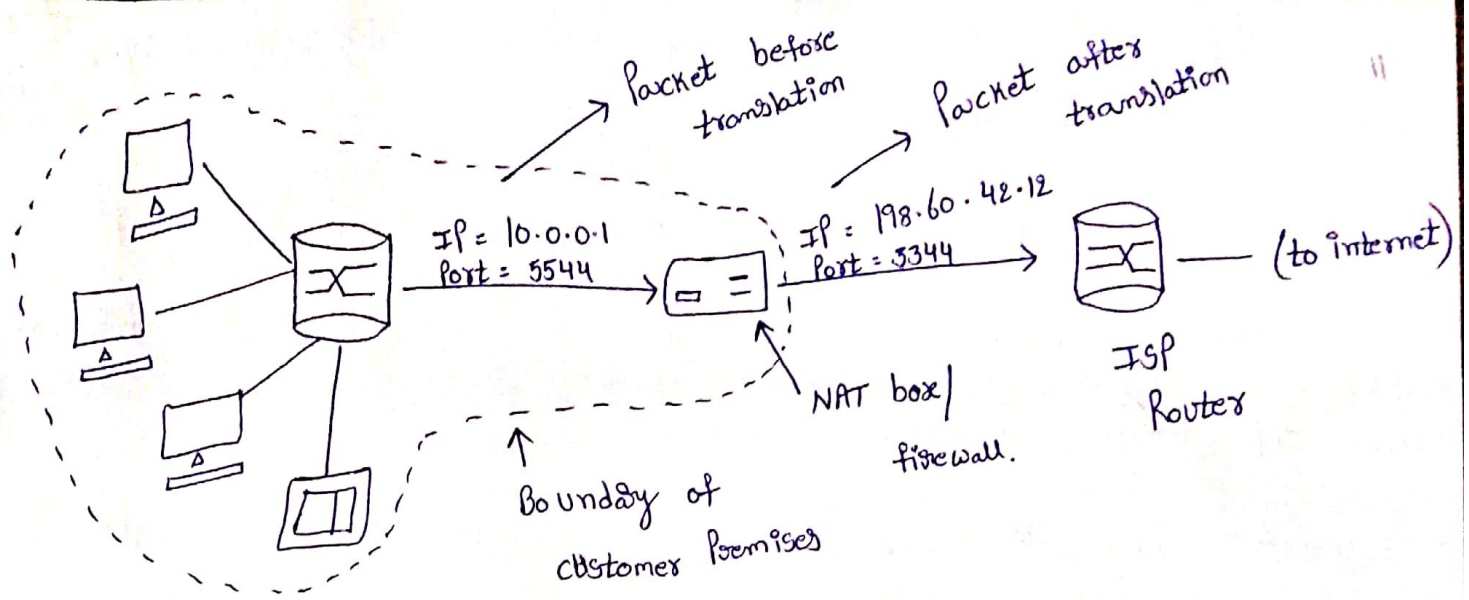 Packet before
translation
Packet after
translation
IP = 10.0.0.1
Port = 5544
IP = 198.60.42.12
Port = 3344
(to internet)
ISP
Router
NAT box/
firewall.
Boundary of
customer Premises